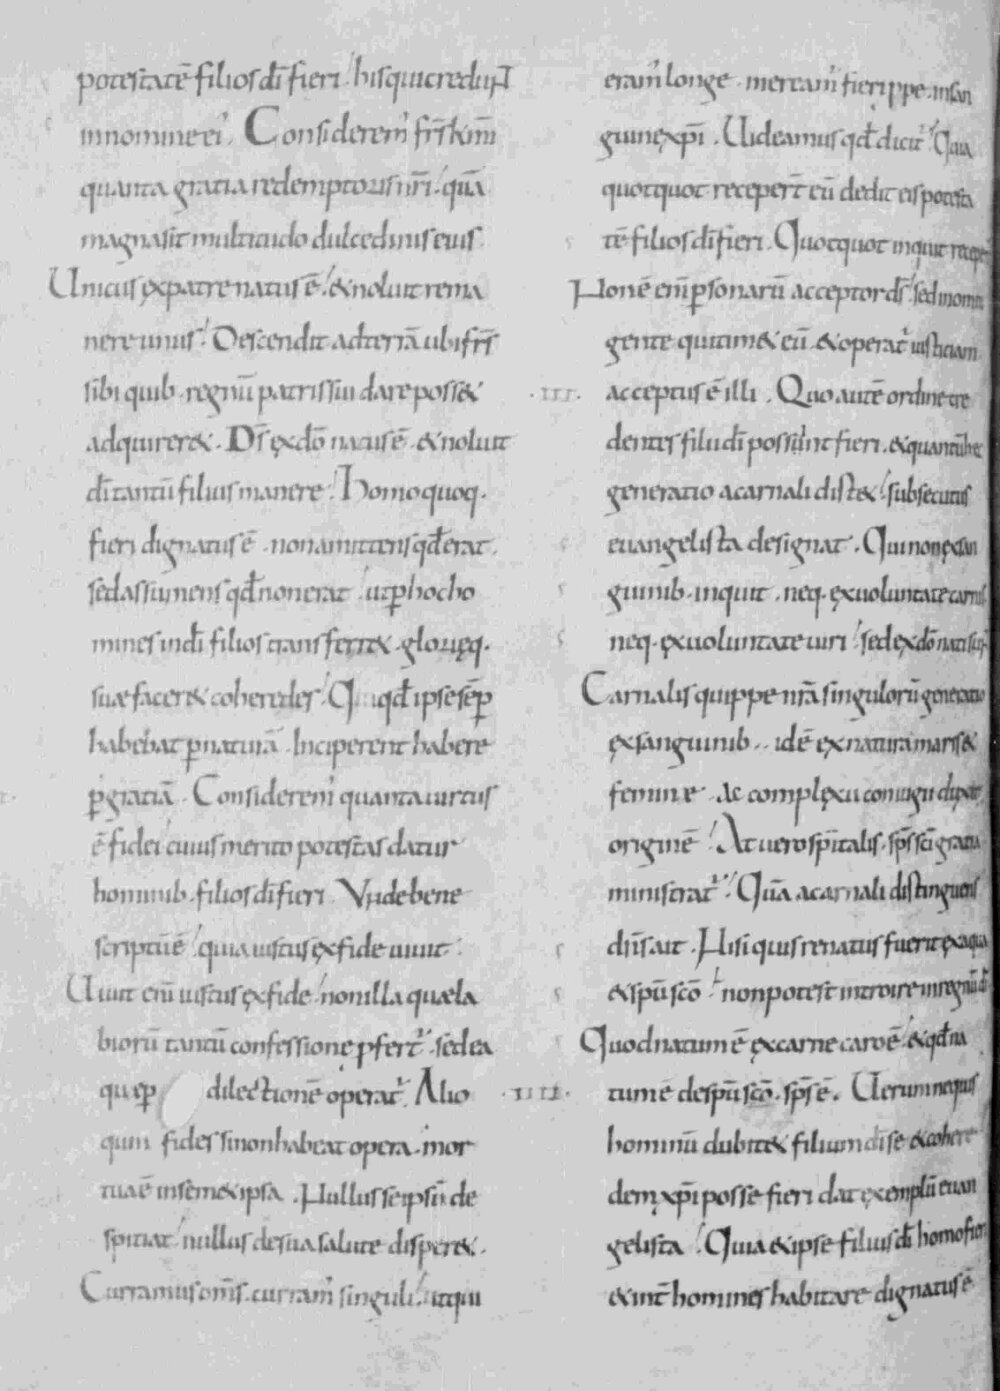 potestatē filios dī fieri. his qui credunt
in nomine ei'. Consideremꝰ frs kmi
quanta gratia redemptoris nri. quā
magna sit multitudo dulcedinis eius.
Unicus ex patre natus ē. & noluit rema
nere unus. Descendit ad terrā ubi frs
sibi quib. regnū patris sui dare poss&
adquirer&. Ds ex dō natus ē. & noluit
dī tantū filius manere. Homo quoq.
fieri dignatus ē. non amittens qd erat.
sed assumens qđ non erat. ut ꝑ hoc ho
mines in dī filios transferr&. glorięq.
suæ facer& coheredes. Qui qđ ipse sēꝑ
habebat ꝑ naturā. Inciperent habere
ꝑ gratiā. Consideremꝰ quanta uirtus
ē fidei cuius merito potestas datur
hominib. filios dī fieri. Vnde bene
scriptū ē. quia iustus ex fide uiuit.
Uiuit enī iustus ex fide. non illa quæ la
biorū tantū confessione ꝓfertꝰ. sed ea
quę ꝑ dilectionē operatꝰ. Alio
quin fides si non habeat opera. mor
tua ē in semetipsa. Nullus se ipsū de
spiciat. nullus de sua salute disper&.
Curramus oms. curramꝰ singuli. ut qui
eramꝰ longe. mereamꝰ fieri ppe. in san
guine xpi. Uideamus qđ dicitꝰ. Quia
quotquot recepert eū dedit eis potesta
tē filios dī fieri. Quotquot inquit recepert
Non ē enī ꝑsonarū acceptor ds. sed in omni
gente qui tim& eū. & operatꝰ iusticiam
.III. acceptus ē illi. Quo autē ordine cre
dentes filii dī possunt fieri. & quantū hęc
generatio a carnali dist&. subsecutus
euangelista designat. Qui non ex san
guinib. inquit. neq. ex uoluntate carnis
neq. ex uoluntate uiri. sed ex dō nati sunt
Carnalis quippe nrā singulorū generatio
ex sanguinib.. idē ex natura maris &
feminę. ac complexu coniugii duxit
originē. At uero spitalis. sps sci gratia
ministratꝰ. Quā a carnali distinguens
dns ait. Nisi quis renatus fuerit ex aqua
& spū scō. non potest introire in regnū dī
Quod natum ē ex carne caro ē. & qđ na
.IIII. tum ē de spū scō. sps ē. Uerum ne quis
hominū dubit& filium dī se & cohere
dem xpi posse fieri dat exemplū euan
gelista. Quia & ipse filius dī homo fieri
& int homines habitare dignatus ē